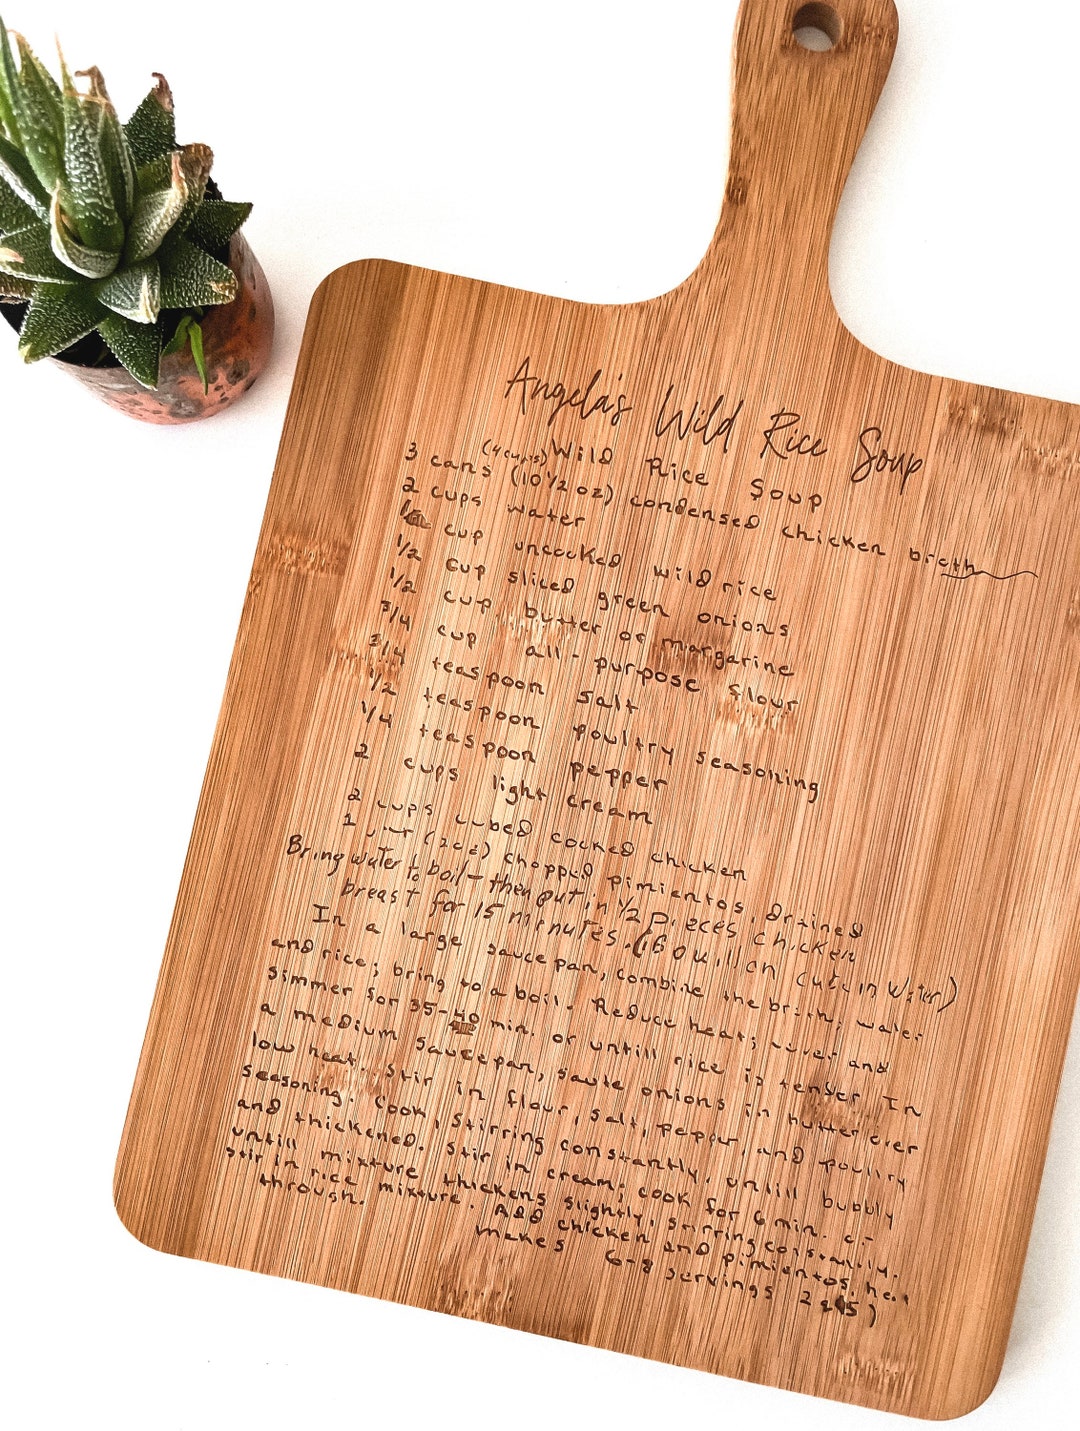 Angela's Wild Rice Soup
(4 cups) Wild Rice Soup
3 cans (10 1/2 oz) condensed chicken broth
2 cups water
cup uncooked wild rice
1/2 cup sliced green onions
1/2 cup butter or margarine
3/4 cup all-purpose flour
3/4 teaspoon salt
1/2 teaspoon poultry seasoning
1/4 teaspoon pepper
2 cups light cream
2 cups cubed cooked chicken
1 jar (2oz) chopped pimientos, drained
Bring water to boil - then put in 1/2 pieces chicken
breast for 15 minutes. (Boullion cube in water)
In a large saucepan, combine the broth, water
and rice; bring to a boil. Reduce heat; cover and
simmer for 35-40 min. or untill rice is tender. In
a medium saucepan, saute onions in butter over
low heat. Stir in flour, salt, pepper, and poultry
seasoning. Cook, stirring constantly, untill bubbly
and thickened. Stir in cream; cook for 6 min. or
untill mixture thickens slightly, stirring constantly.
Stir in rice mixture. Add chicken and pimientos, heat
through. makes 6-8 servings